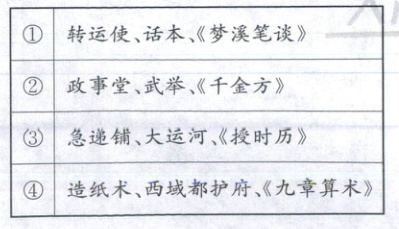 ① 转运使、话本、《梦溪笔谈》
② 政事堂、武举、《千金方》
③ 急递铺、大运河、《授时历》
④ 造纸术、西域都护府、《九章算术》